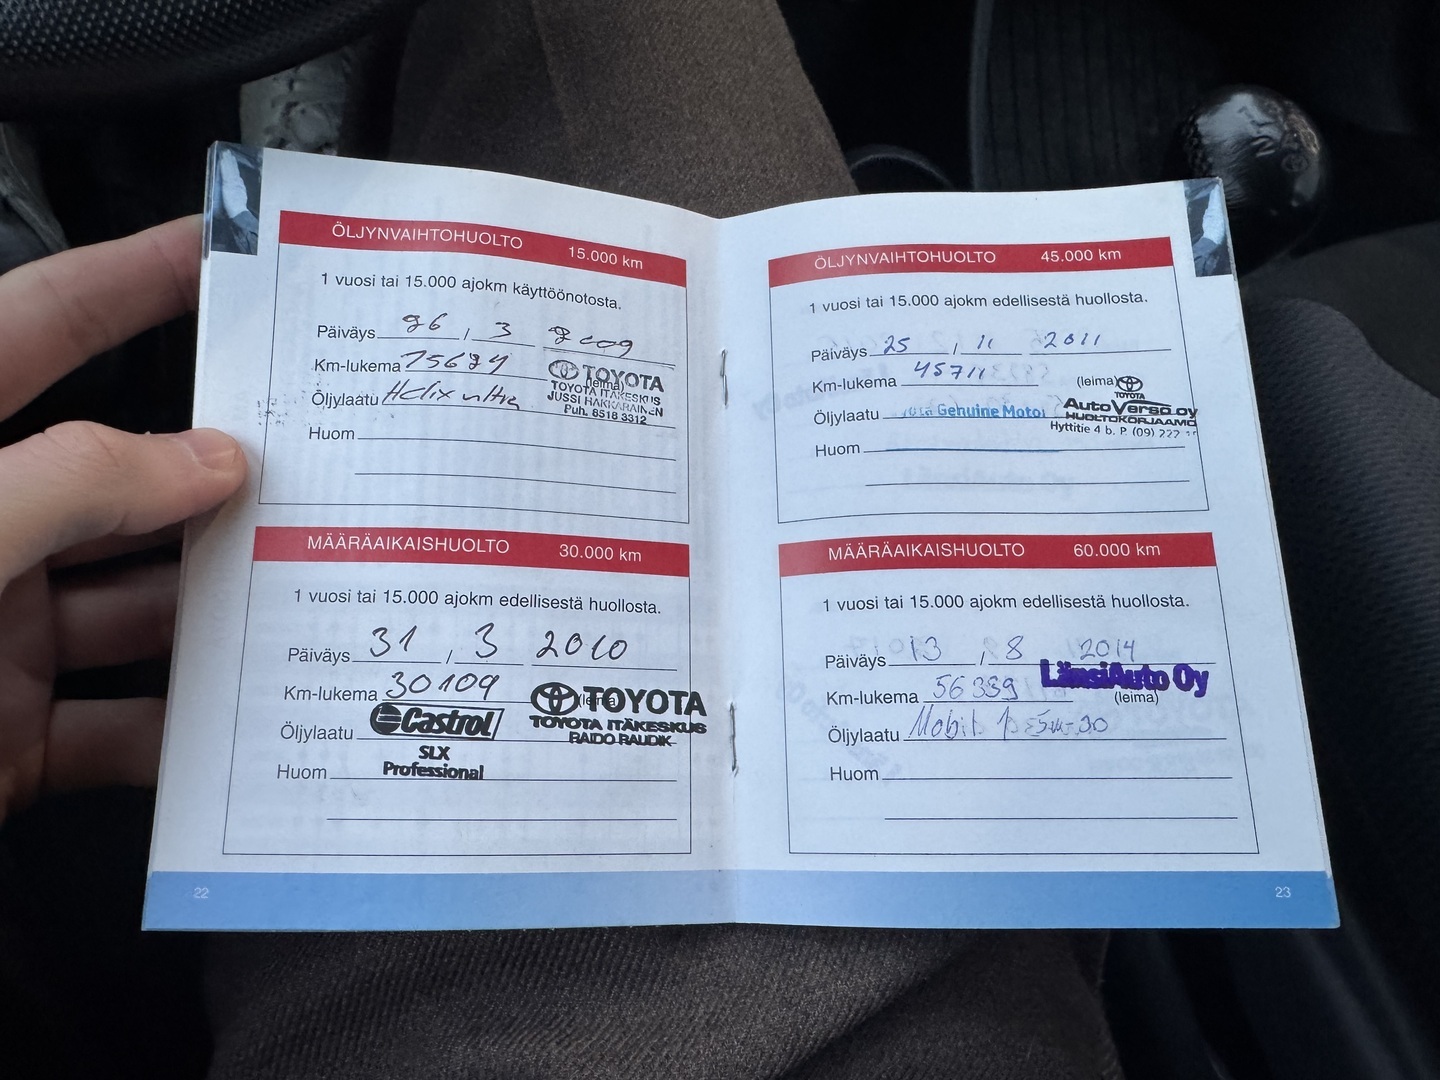 ÖLJYNVAIHTOHUOLTO 15.000 km
1 vuosi tai 15.000 ajokm käyttöönotosta.
Päiväys 26 / 3 2009
Km-lukema 15674
(leima)
TOYOTA
TOYOTA ITÄKESKUS
JUSSI HAKKARAINEN
Puh. 8518 3312
Öljylaatu Helix ultra
Huom
MÄÄRÄAIKAISHUOLTO 30.000 km
1 vuosi tai 15.000 ajokm edellisestä huollosta.
Päiväys 31 / 3 2010
Km-lukema 30109
(leima)
TOYOTA
TOYOTA ITÄKESKUS
RAIDO RAUDIK
Öljylaatu Castrol
SLX
Professional
Huom
22
ÖLJYNVAIHTOHUOLTO 45.000 km
1 vuosi tai 15.000 ajokm edellisestä huollosta.
Päiväys 25 / 11 2011
Km-lukema 45711
(leima)
TOYOTA
AutoVerso oy
HUOLTOKORJAAMO
Hyttitie 4 b. P. (09) 222
Öljylaatu Genuine Motor
Huom
MÄÄRÄAIKAISHUOLTO 60.000 km
1 vuosi tai 15.000 ajokm edellisestä huollosta.
Päiväys 13 / 8 2014
LänsiAuto Oy
Km-lukema 56339
(leima)
Öljylaatu Mobil 1 5w-30
Huom
23